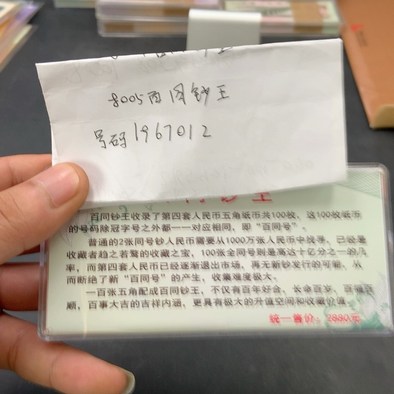 8005百同钞王
号码1967012
钞王
百同钞王收录了第四套人民币五角纸币共100枚，这100枚纸币
的号码除冠字号之外都一一对应相同，即“百同号”。
普通的2张同号钞人民币需要从1000万张人民币中找寻，已是
收藏者趋之若鹜的收藏之宝，100张全同号则是高达十亿分之一的几
率，而第四套人民币已经逐渐退出市场，再无新钞发行的可能，从
而断绝了新“百同号”的产生，收集难度极大。
一百张五角配成百同钞王，不仅有百年好合、长命百岁、百福
顺，百事大吉的吉祥内涵，更具有极大的升值空间和收藏价值。
统一售价：2680元